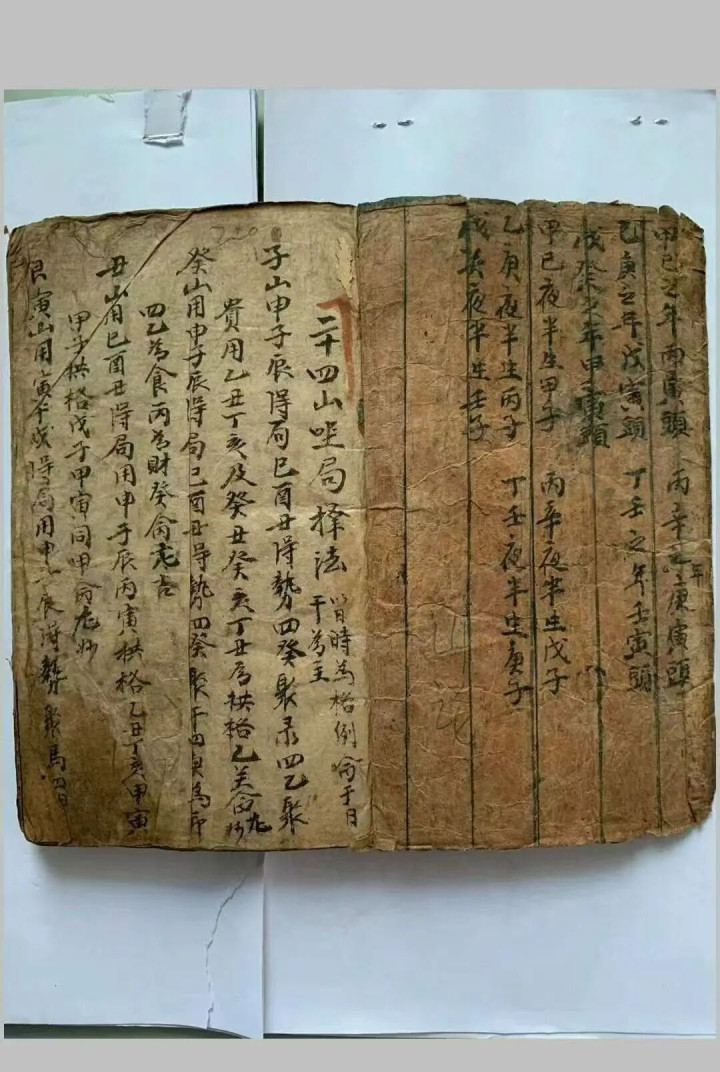 甲己之年丙寅頭 丙辛之年庚寅頭
乙庚之年戊寅頭 丁壬之年壬寅頭
戊癸之年甲寅頭
甲己夜半生甲子 丙辛夜半生戊子
乙庚夜半生丙子 丁壬夜半生庚子
戊癸夜半生壬子
二十四山坐局择法 皆時為格例命于日
干為主
子山申子辰得局巳酉丑得勢四癸聚录四乙聚
貴用乙丑丁亥及癸丑癸亥丁丑為拱格乙美命九妙
癸山用申子辰得局巳酉丑得勢四癸聚干四庚為印
四乙為食丙為財癸命尤吉
丑山用巳酉丑得局用申子辰丙寅拱格乙丑丁亥甲寅
甲子拱格戊子甲寅同甲命尤妙
艮寅山用寅午戌得局用申子辰得勢聚馬四